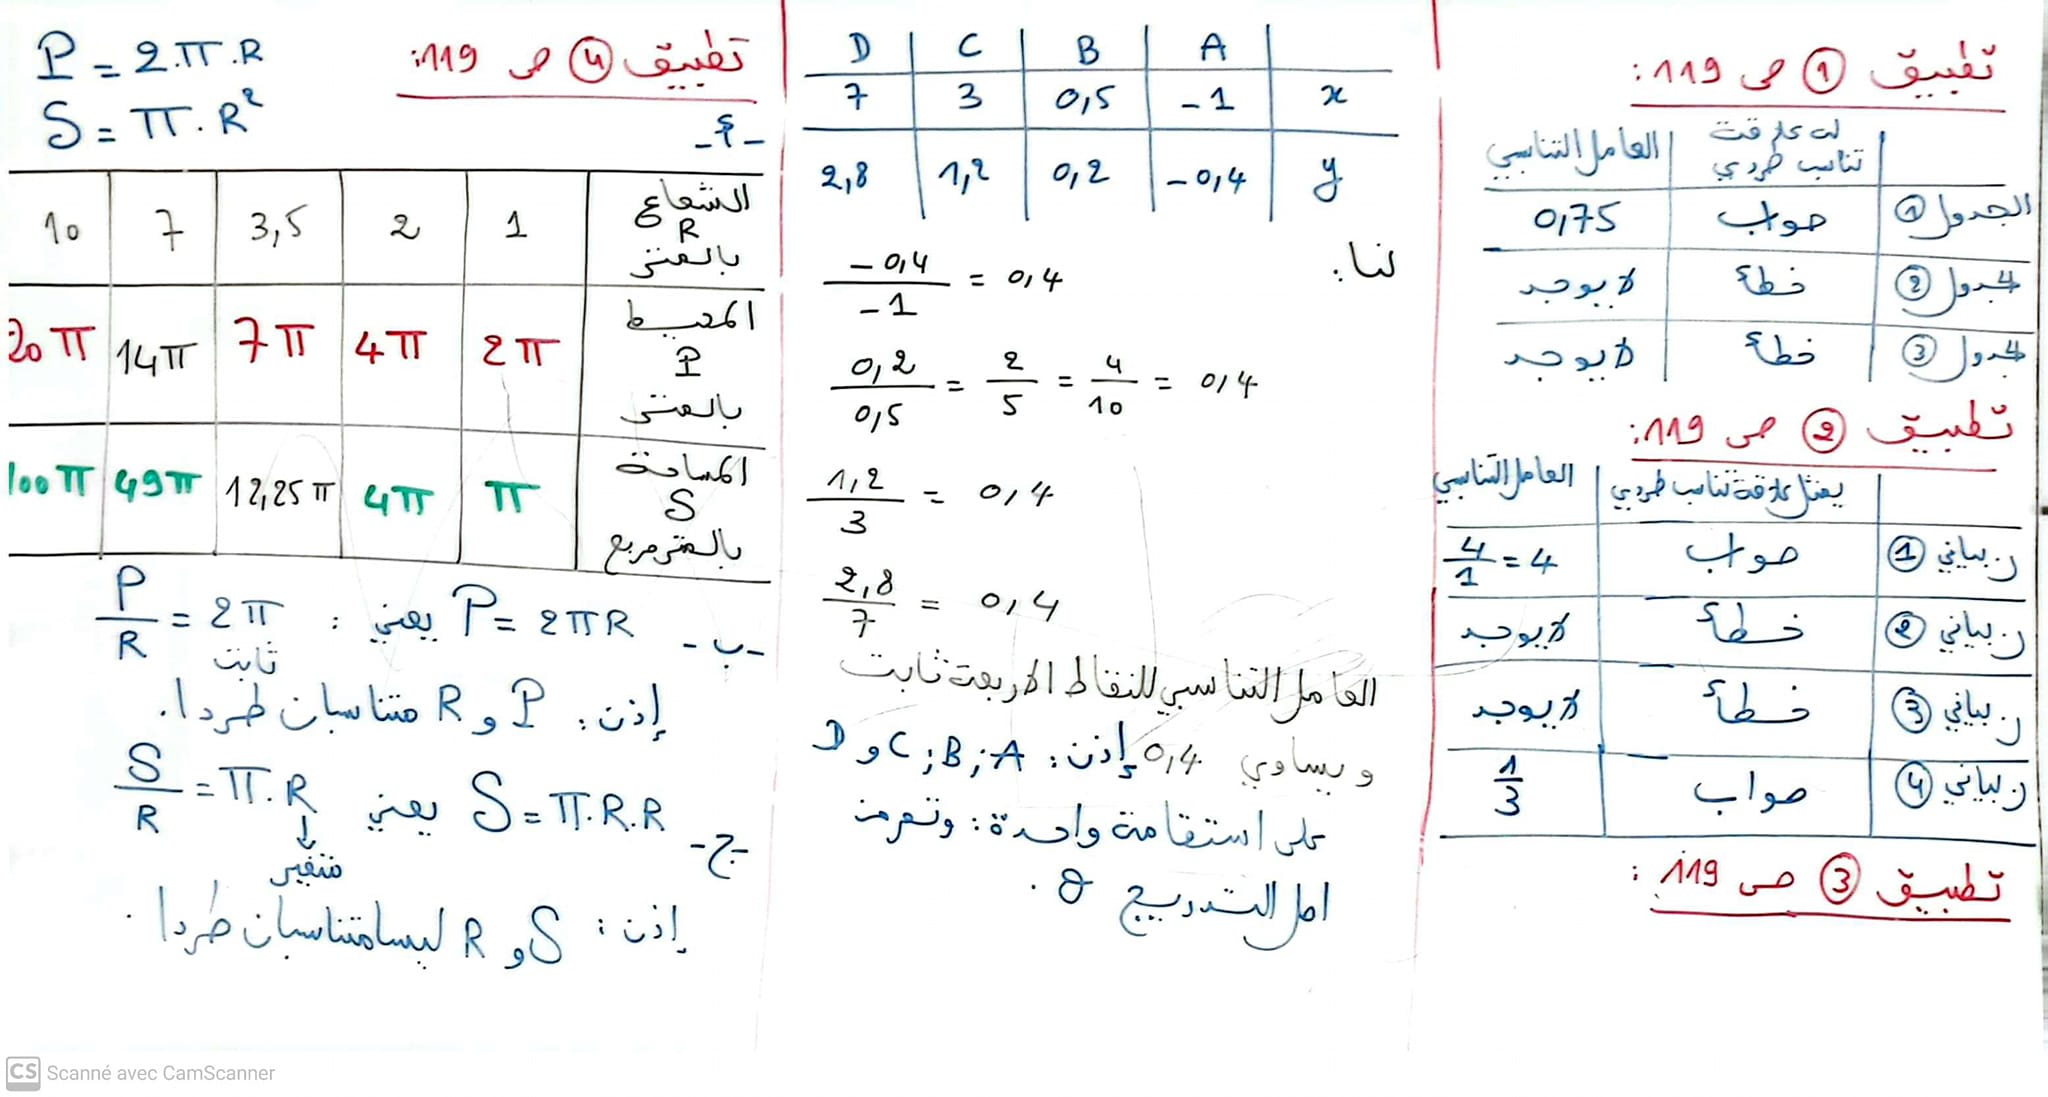 تطبيق ① ص 119:
له علاقة تناسب طردي | العامل التناسبي
الجدول ① | صواب | 0,75
الجدول ② | خطأ | لا يوجد
الجدول ③ | خطأ | لا يوجد
تطبيق ② ص 119:
يمثل علاقة تناسب طردي | العامل التناسبي
ر. بياني ① | صواب | 4/1 = 4
ر. بياني ② | خطأ | لا يوجد
ر. بياني ③ | خطأ | لا يوجد
ر. بياني ④ | صواب | 1/3
تطبيق ③ ص 119:
A | B | C | D
x | -1 | 0,5 | 3 | 7
y | -0,4 | 0,2 | 1,2 | 2,8
لنا:
-0,4/-1 = 0,4
0,2/0,5 = 2/5 = 4/10 = 0,4
1,2/3 = 0,4
2,8/7 = 0,4
العامل التناسبي للنقاط الأربعة ثابت
و يساوي 0,4 إذن: A ; B ; C و D
على استقامة واحدة: وتمر من
أصل التدريج O.
تطبيق ④ ص 119:
P = 2.π.R
S = π.R²
-أ-
الشعاع R بالمتر | 1 | 2 | 3,5 | 7 | 10
المحيط P بالمتر | 2π | 4π | 7π | 14π | 20π
المساحة S بالمتر مربع | π | 4π | 12,25π | 49π | 100π
-ب- P = 2πR يعني: P/R = 2π
ثابت
إذن: P و R متناسبان طردا.
-ج- S = π.R.R يعني S/R = π.R
↓
متغير
إذن: S و R ليسا متناسبان طردا.
Scanné avec CamScanner
CS